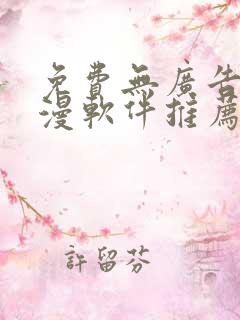 免費無廣告
漫軟件推薦
許留芬